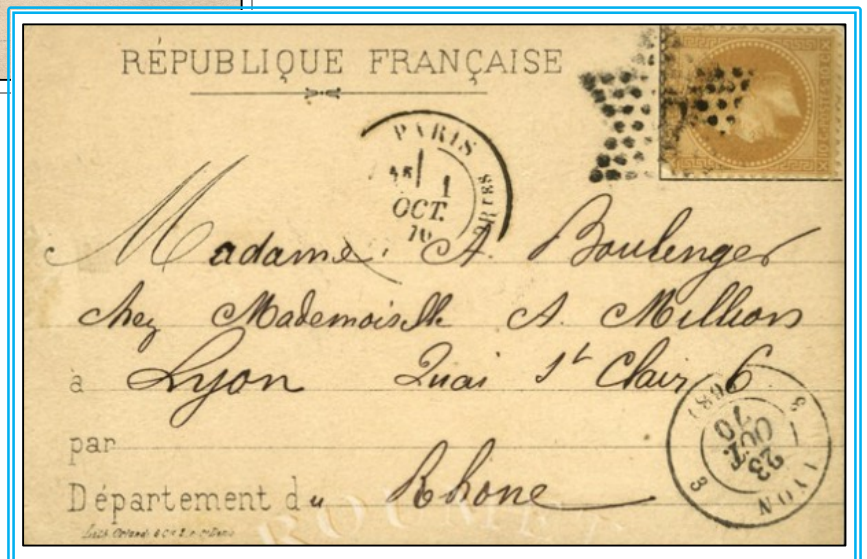 RÉPUBLIQUE FRANÇAISE
PARIS
1
OCT.
70
Madame A. Boulenger
chez Mademoiselle A. Millions
à Lyon Quai St Clair 6
par
Département du Rhone
LYON
23
OCT.
70
(68)
3
ROUMET